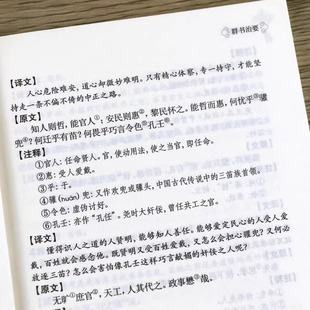 群书治要
【译文】
人心危险难安，道心却微妙难明。只有精心体察，专一持守，才能坚
持走一条不偏不倚的中正之路。
【原文】
知人则哲，能官人①；安民则惠②，黎民怀之。能哲而惠，何忧乎驩
兜④？何迁乎有苗？何畏乎巧言令色⑤孔壬⑥？
【注释】
①官人：任命贤人。官，使动用法，使之当官，即任命。
②惠：受人爱戴。
③乎：于。
④驩（huān）兜：又作欢兜或驩头，中国古代传说中的三苗族首领。
⑤令色：虚伪讨好。
⑥孔壬：亦作“孔任”。尧时大奸佞，曾任共工之官。
【译文】
懂得识人之道的人贤明，能够知人善任。能够爱定民心的人受人爱
戴，百姓就会感念他。既贤明又受百姓爱戴，又怎么会担心驩兜？又何必
放逐三苗？怎么会害怕像孔壬这样巧言献媚的奸佞之人呢？
【原文】
无旷①庶官②，天工，人其代之。政事懋③哉。